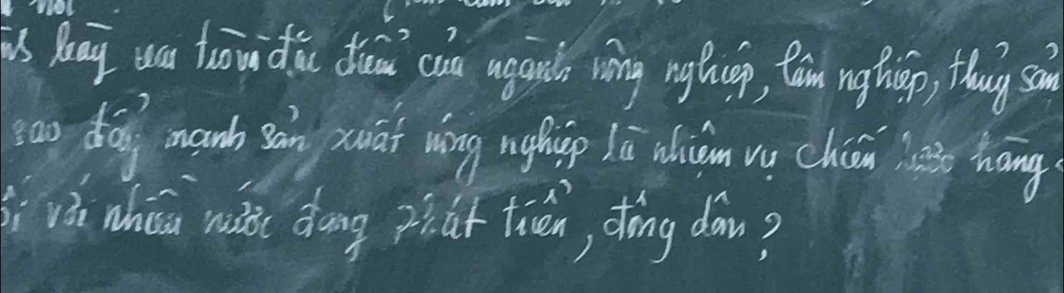 hãy vai trò và đặc điểm của ngành nông nghiệp, lâm nghiệp, thủy sản
sao đẩy mạnh sản xuất nông nghiệp là nhiệm vụ chiến lược hàng
với nhiều nước đang phát triển, đông dân?